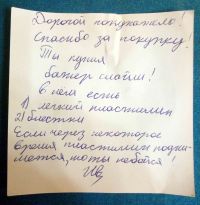 Дорогой покупатель!
Спасибо за покупку!
Ты купил
баттер слайм!
В нем есть
1) легкий пластилин
2) блестки
Если через некоторое
время пластилин подни-
мется, то ты не бойся!